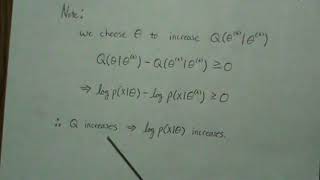 Note:
we choose θ to increase Q(θ⁽ᵏ⁾|θ⁽ᵏ⁾)
Q(θ|θ⁽ᵏ⁾) - Q(θ⁽ᵏ⁾|θ⁽ᵏ⁾) ≥ 0
⇒ log p(x|θ) - log p(x|θ⁽ᵏ⁾) ≥ 0
∴ Q increases ⇒ log p(x|θ) increases.